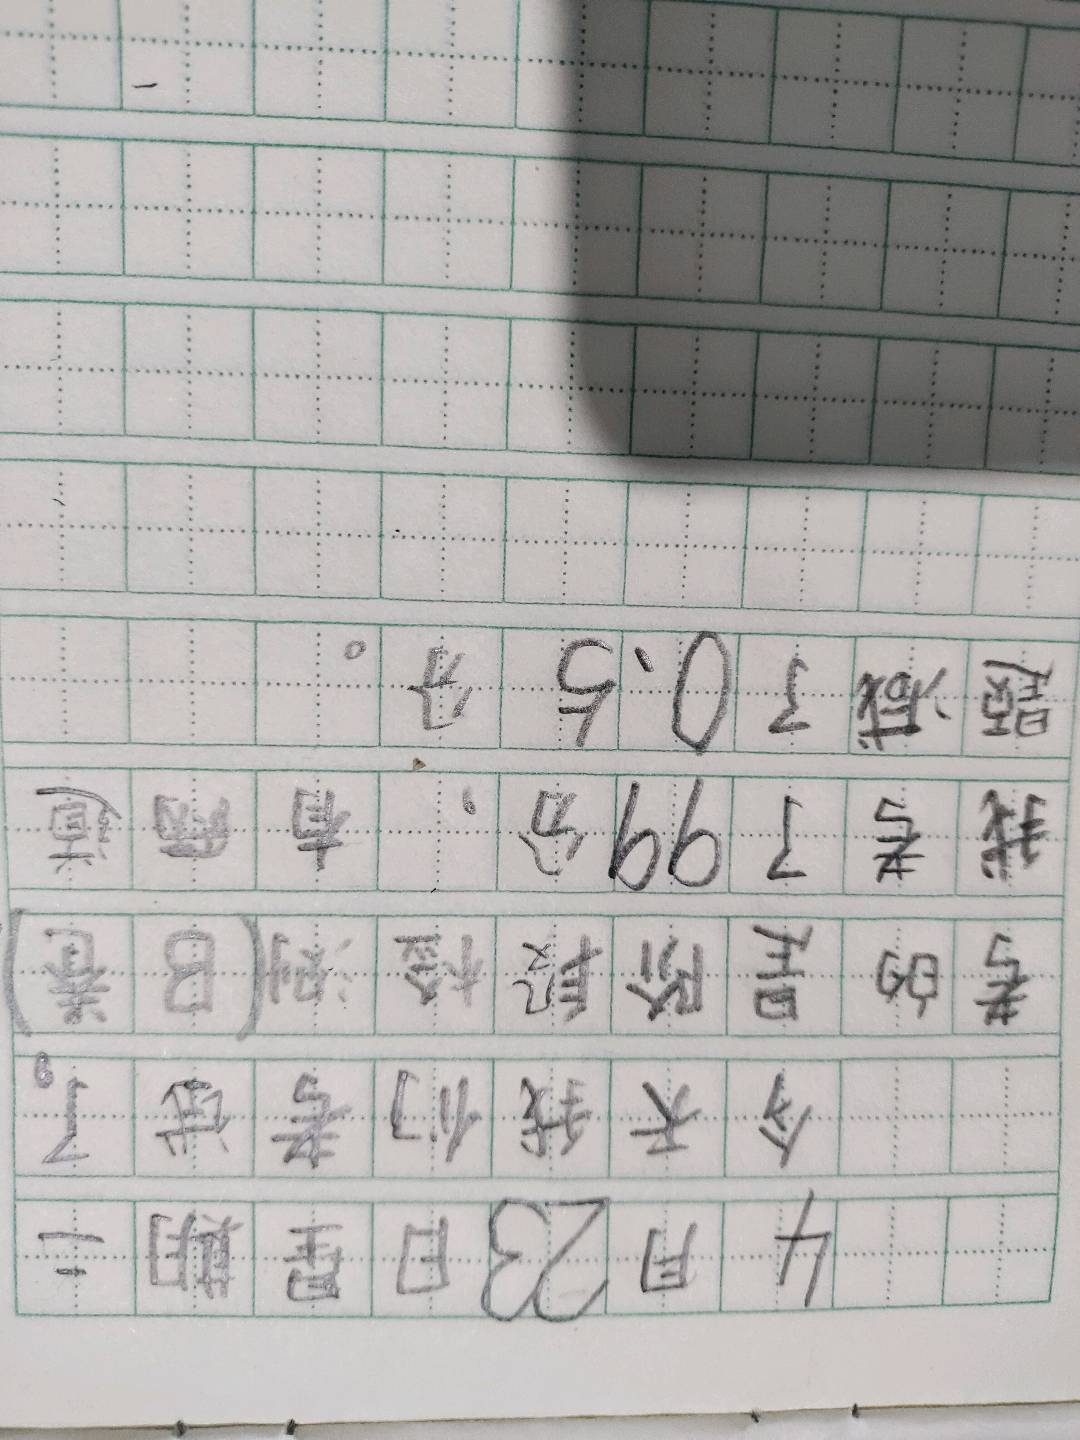 4月23日星期二
今天我们考试了,
考的是阶段检测(B卷)
我考了99分,有两道
题减了0.5分。